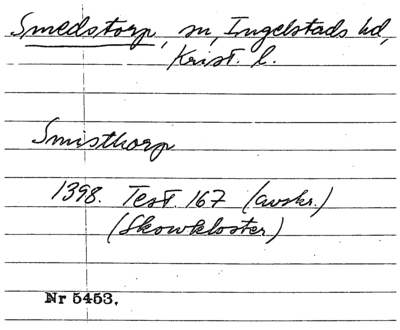 Smedstorp, sn, Ingelstads hd,
Krist. l.
Smisthorp
1398. Test. 167 (avskr.)
(Skowkloster)
Nr 5453.